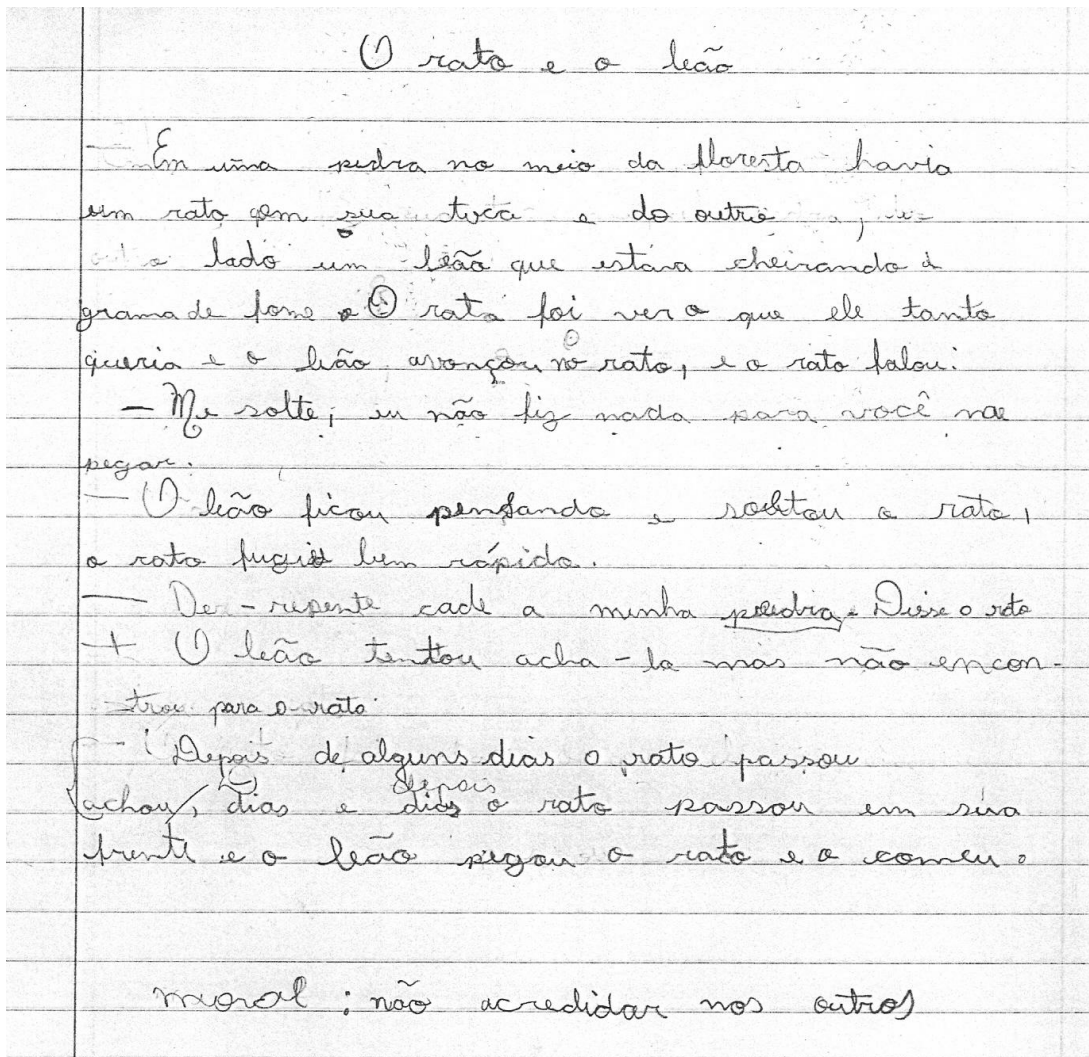 O rato e o leão
Em uma pedra no meio da floresta havia
um rato em sua toca e do outro
lado um leão que estava cheirando a
grama de fome e O rato foi ver o que ele tanto
queria e o leão avançou no rato, e o rato falou:
— Me solte, eu não fiz nada para você me
pegar.
— O leão ficou pensando e soltou o rato,
o rato fugiu bem rápido.
— Der-repente cade a minha pedra. Disse o rato
— O leão tentou acha-la mas não encon-
trou para o rato
— Depois de alguns dias o rato passou
achou, dias e dias depois o rato passou em sua
frente e o leão pegou o rato e o comeu.
moral: não acredidar nos outros